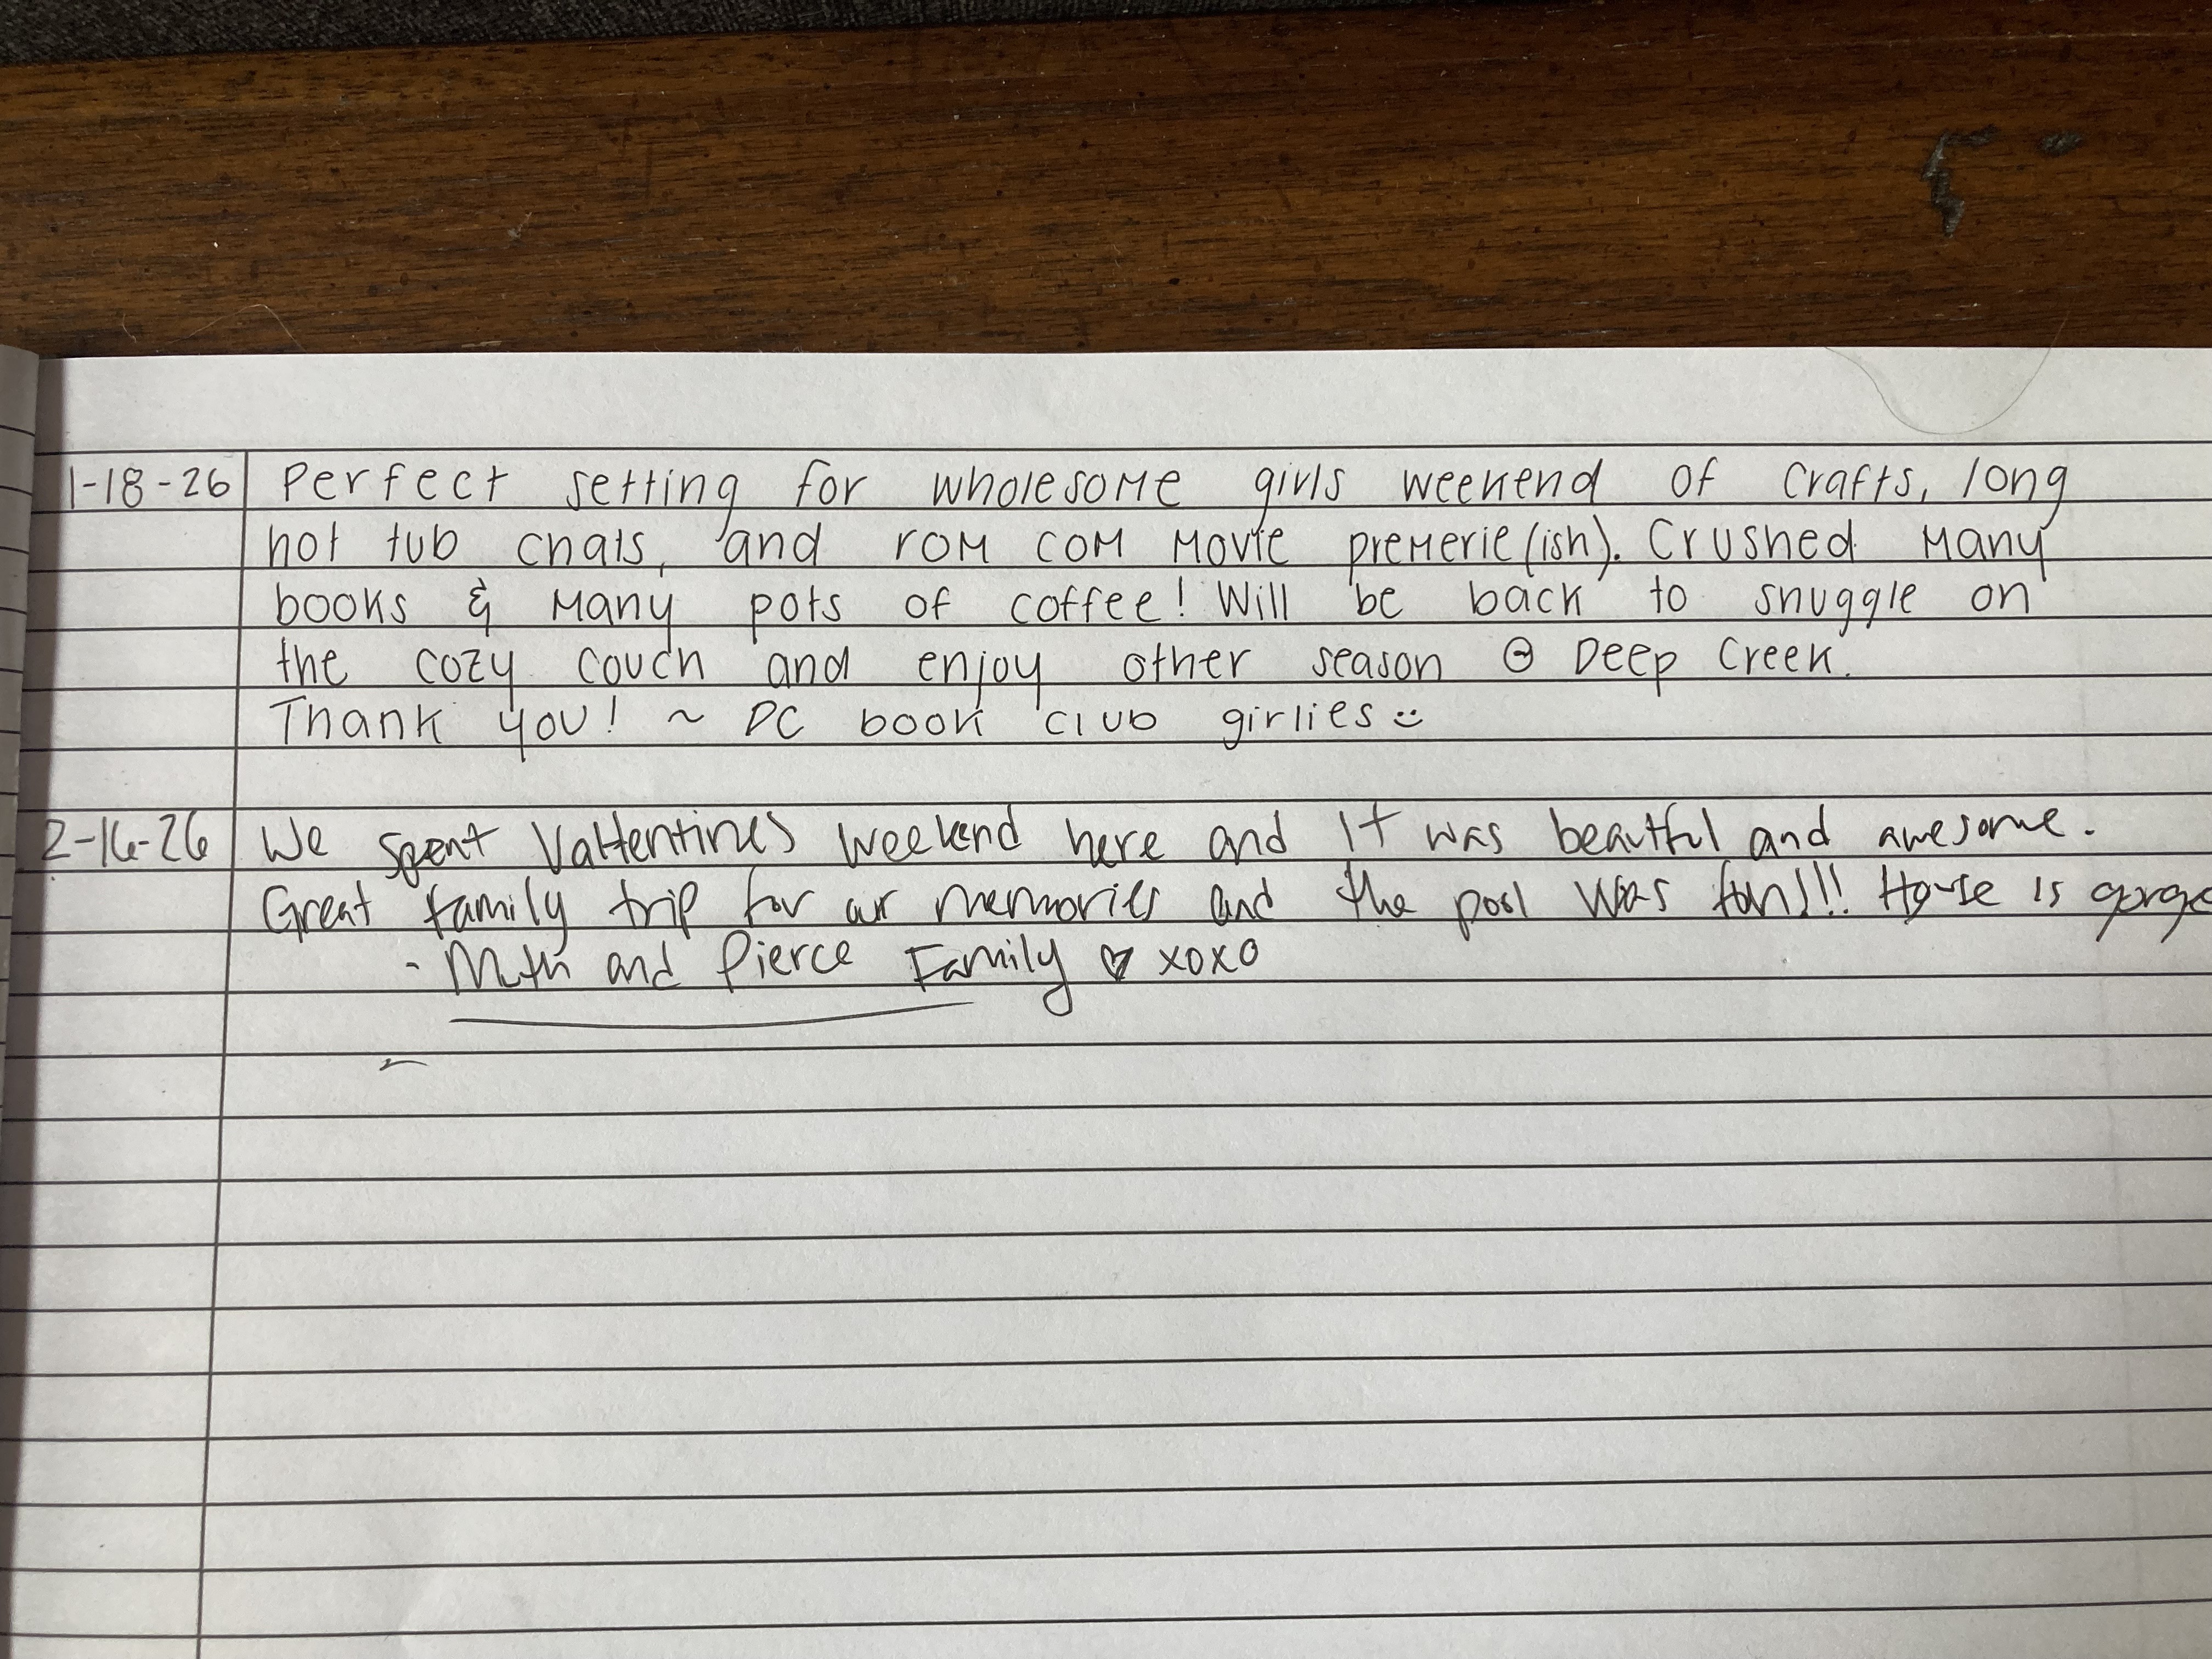 1-18-26 Perfect setting for wholesome girls weekend of crafts, long
hot tub chats, and rom com movie premerie(ish). Crushed many
books & many pots of coffee! Will be back to snuggle on
the cozy couch and enjoy other season @ Deep Creek.
Thank you! ~ DC book club girlies :)
2-16-26 We spent Valtentines weekend here and It was beautful and awesome.
Great family trip for our memories and the pool was fun!!! House is
- and Pierce Family ♡ xoxo